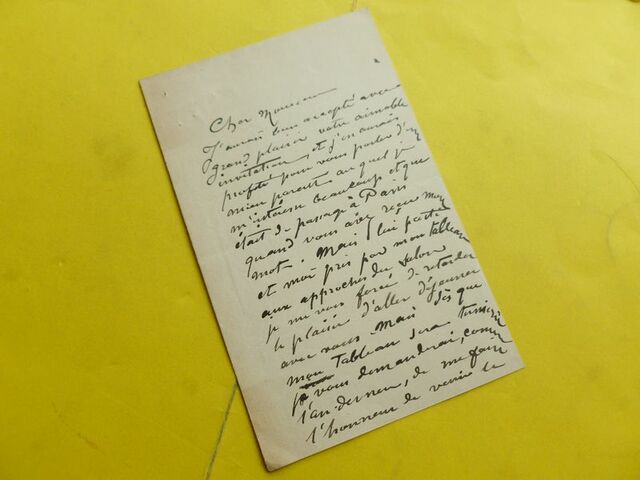 Cher Monsieur
J'aurais bien accepté avec
grand plaisir votre aimable
invitation et j'en aurais
profité pour vous parler d'un
mien parent auquel je
m'intéresse beaucoup et qui
était de passage à Paris
quand vous avez reçu mon
mot. Mais lui parti
et moi pris par mon tableau
aux approches du Salon
je me vois forcé de retarder
le plaisir d'aller déjeuner
avec vous. Mais dès que
mon Tableau sera terminé
je vous demanderai, comme
l'an dernier, de me faire
l'honneur de venir le